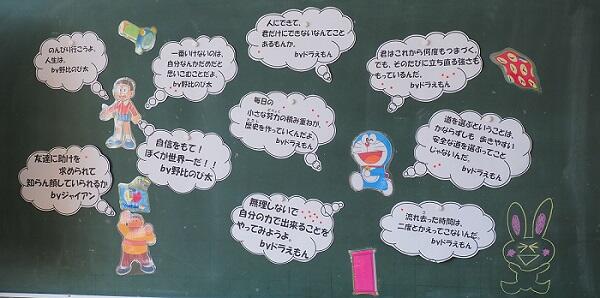 のんびり行こうよ、
人生は。
by野比のび太
一番いけないのは、
自分なんかだめだと
思いこむことだよ。
by野比のび太
人にできて、
君だけにできないなんてこと
あるもんか。
byドラえもん
君はこれから何度もつまづく。
でも、そのたびに立ち直る強さも
もっているんだ。
byドラえもん
自信をもて！
ぼくが世界一だ！！
by野比のび太
毎日の
小さな努力の積み重ねが、
歴史を作っていくんだよ。
byドラえもん
道を選ぶということは、
かならずしも　歩きやすい
安全な道を選ぶってこと
じゃないんだ。
byドラえもん
友達に助けを
求められて
知らん顔していられるか
byジャイアン
無理しないで
自分の力で出来ることを
やってみようよ。
byドラえもん
流れ去った時間は、
二度とかえってこないんだ。
byドラえもん